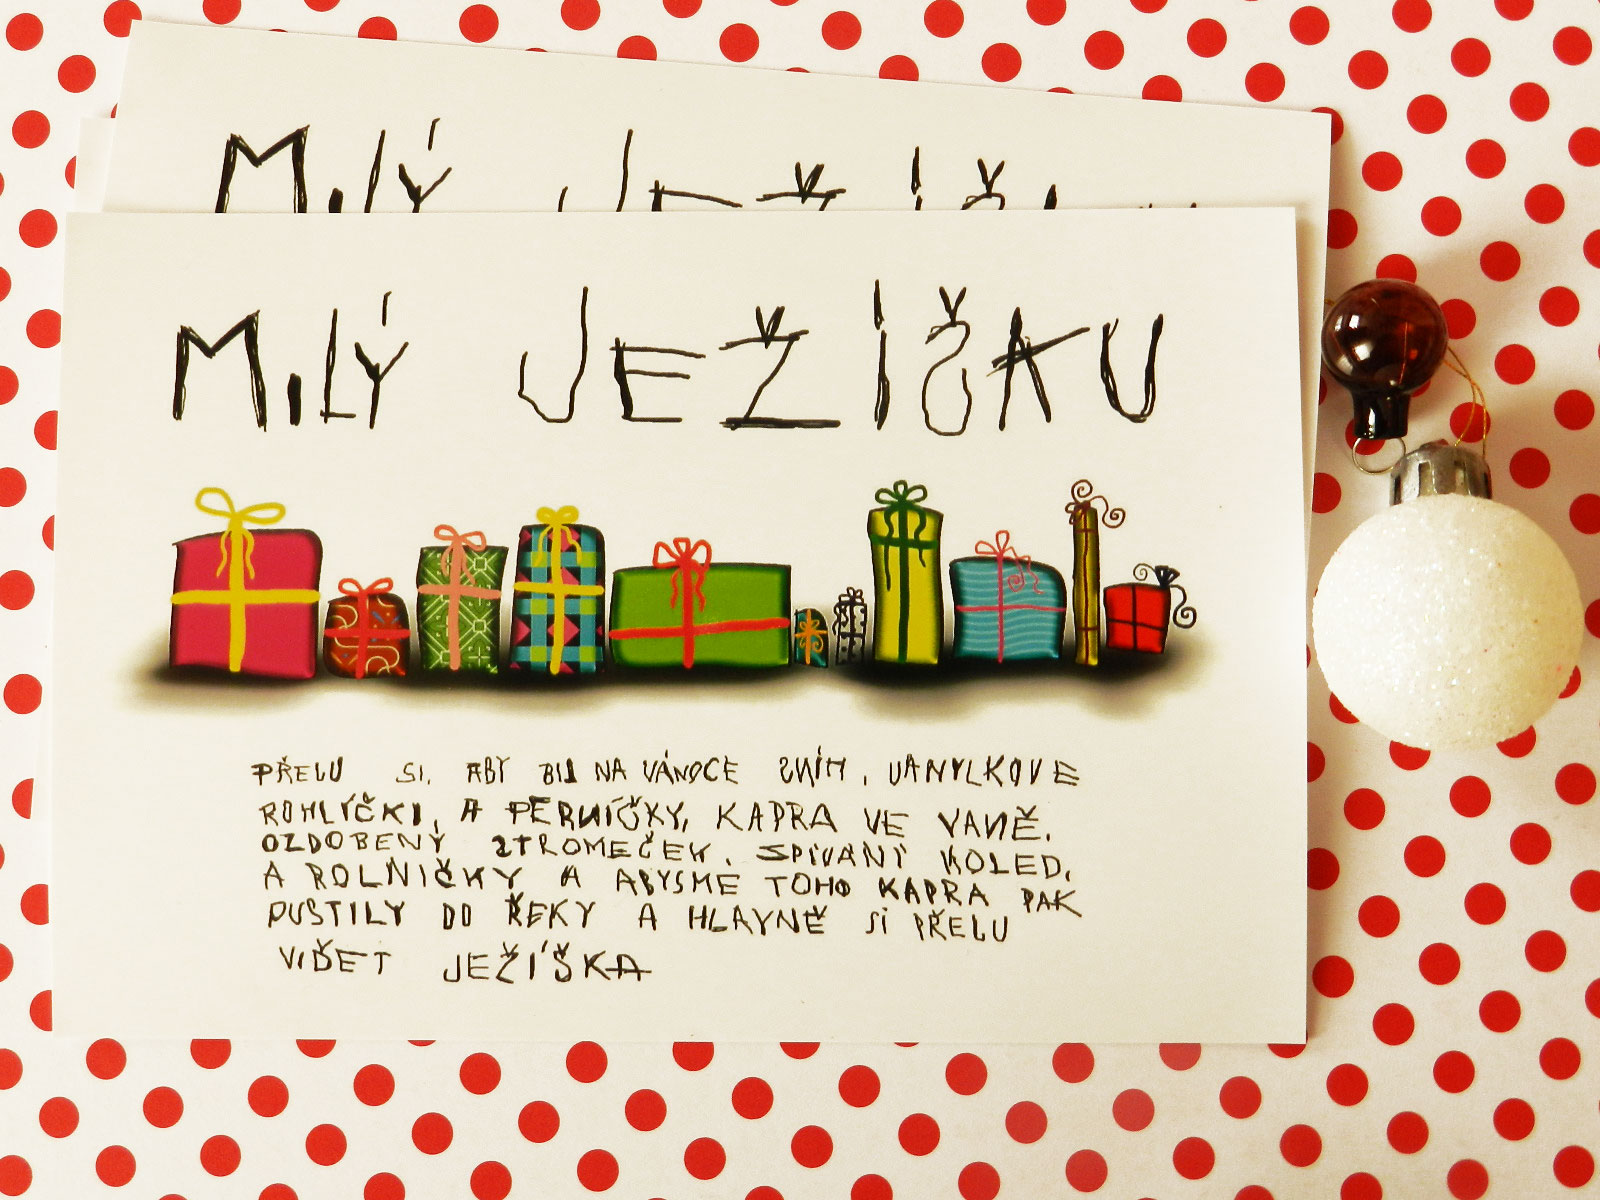 MILÝ JEŽÍŠ
MILÝ JEŽÍŠKU
PŘELU SI, ABY BIL NA VÁNOCE SNÍH, VANYLKOVE
ROHLÝČKI, A PERNÍČKY, KAPRA VE VANĚ.
OZDOBENÝ STROMEČEK, SPÍVÁNÍ KOLED,
A ROLNIČKY A ABYSME TOHO KAPRA PAK
PUSTILY DO ŘEKY A HLAVNĚ SI PŘELU
VIĎET JEŽÍŠKA